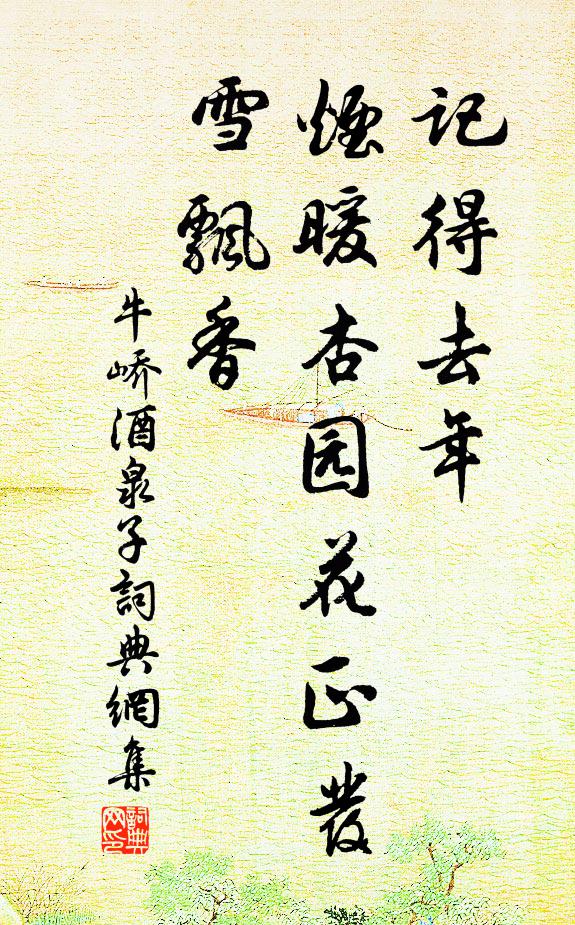 记得去年
煙暖杏园花正發
雪飄香
牛嶠酒泉子詞典網集
詞典网印